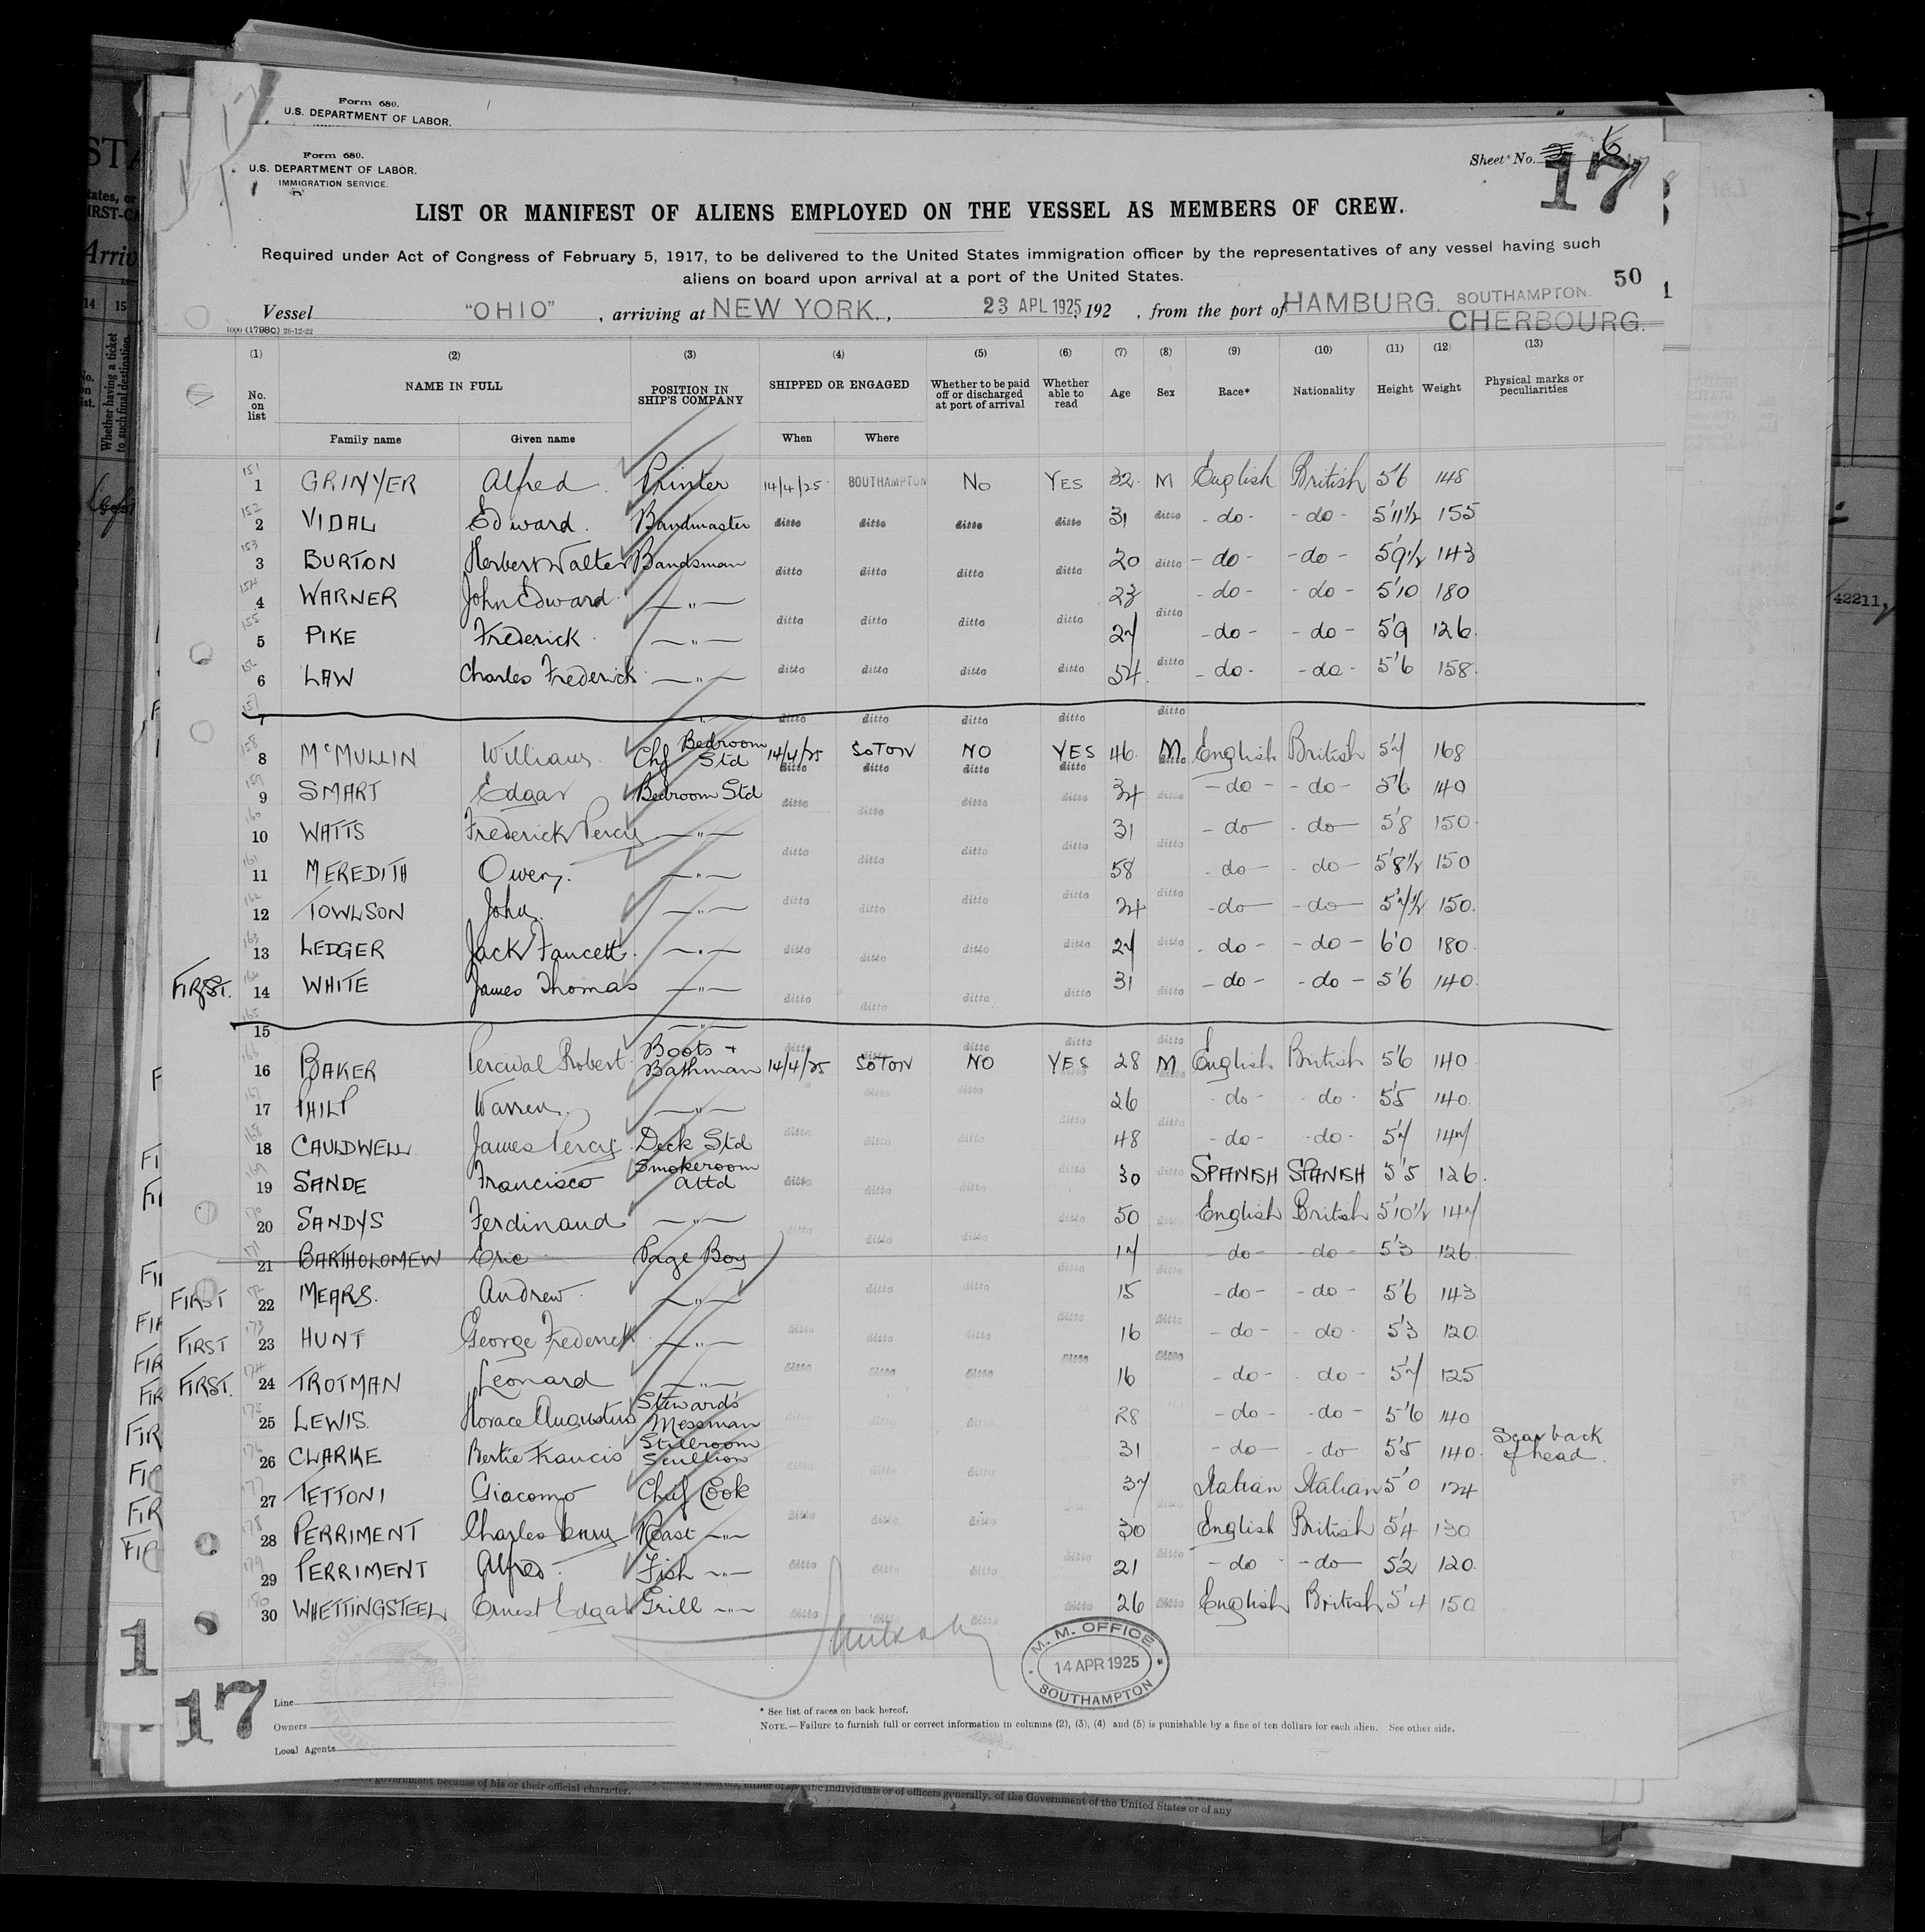 Form 680.
U.S. DEPARTMENT OF LABOR.
Form 680.
U.S. DEPARTMENT OF LABOR.
IMMIGRATION SERVICE.
Sheet No. 6
17
LIST OR MANIFEST OF ALIENS EMPLOYED ON THE VESSEL AS MEMBERS OF CREW.
Required under Act of Congress of February 5, 1917, to be delivered to the United States immigration officer by the representatives of any vessel having such
aliens on board upon arrival at a port of the United States.
50
Vessel "OHIO", arriving at NEW YORK., 23 APL 1925, 192 , from the port of HAMBURG. SOUTHAMPTON. CHERBOURG.
1000 (1798C) 28-12-22
(1) (2) (3) (4) (5) (6) (7) (8) (9) (10) (11) (12) (13)
No. on list NAME IN FULL POSITION IN SHIP'S COMPANY SHIPPED OR ENGAGED Whether to be paid off or discharged at port of arrival Whether able to read Age Sex Race* Nationality Height Weight Physical marks or peculiarities
Family name Given name When Where
151 1 GRINYER Alfred Printer 14/4/25 SOUTHAMPTON No YES 32 M English British 5'6 148
152 2 VIDAL Edward. Bandmaster ditto ditto ditto ditto 31 ditto - do - - do - 5'11½ 155
153 3 BURTON Herbert Walter Bandsman ditto ditto ditto ditto 20 ditto - do - - do - 5'9½ 143
154 4 WARNER John Edward — " — ditto ditto ditto ditto 23 ditto - do - - do - 5'10 180
155 5 PIKE Frederick — " — ditto ditto ditto ditto 27 ditto - do - - do - 5'9 126
156 6 LAW Charles Frederick — " — ditto ditto ditto ditto 54 ditto - do - - do - 5'6 158
157 7 ditto ditto ditto ditto
158 8 McMULLIN William Chf Bedroom Std 14/4/25 SOTON NO YES 46 M English British 5'7 168
159 9 SMART Edgar Bedroom Std ditto ditto ditto ditto 34 ditto - do - - do - 5'6 140
160 10 WATTS Frederick Percy — " — ditto ditto ditto ditto 31 ditto - do - - do - 5'8 150
161 11 MEREDITH Owen. — " — ditto ditto ditto ditto 58 ditto - do - - do - 5'8½ 150
162 12 TOWLSON John. — " — ditto ditto ditto ditto 24 ditto - do - - do - 5'7½ 150
163 13 LEDGER Jack Fancett. — " — ditto ditto ditto ditto 27 ditto - do - - do - 6'0 180
FIRST. 164 14 WHITE James Thomas — " — ditto ditto ditto ditto 31 ditto - do - - do - 5'6 140
165 15 — " — ditto ditto ditto ditto
166 16 BAKER Percival Robert Boots + Bathman 14/4/25 SOTON NO YES 28 M English British 5'6 140
167 17 PHILP Warren. — " — ditto ditto 26 - do - - do - 5'5 140
168 18 CAULDWELL James Percy Deck Std ditto ditto ditto ditto 48 ditto - do - - do - 5'7 147
169 19 SANDE Francisco Smokeroom Attd ditto ditto ditto ditto 30 ditto SPANISH SPANISH 5'5 126.
170 20 SANDYS Ferdinand — " — ditto ditto ditto ditto 50 ditto English British 5'10½ 147
171 21 BARTHOLOMEW Eric Page Boy ditto ditto ditto 17 ditto - do - - do - 5'3 126
FIRST 172 22 MEARS. Andrew — " — ditto ditto 15 - do - - do - 5'6 143
FIRST 173 23 HUNT George Frederick — " — ditto ditto ditto ditto 16 ditto - do - - do - 5'3 120
FIRST. 174 24 TROTMAN Leonard — " — ditto ditto ditto ditto 16 ditto - do - - do - 5'7 125
175 25 LEWIS. Horace Augustus Steward's Messman 28 - do - - do - 5'6 140
176 26 CLARKE Bertie Francis Stillroom Scullion 31 - do - - do - 5'5 140 Scar back of head.
177 27 TETTONI Giacomo Chef Cook 37 Italian Italian 5'0 124
178 28 PERRIMENT Charles Henry Roast — " — ditto ditto ditto 30 English British 5'4 130
179 29 PERRIMENT Alfred Fish — " — ditto ditto ditto ditto 21 ditto - do - - do - 5'2 120
180 30 WHETTINGSTEEL Ernest Edgar Grill — " — ditto ditto ditto ditto 26 ditto English British 5'4 150
M. M. OFFICE
14 APR 1925
SOUTHAMPTON
17
Line
Owners
Local Agents
* See list of races on back hereof.
NOTE.—Failure to furnish full or correct information in columns (2), (3), (4) and (5) is punishable by a fine of ten dollars for each alien. See other side.
42211,
government because of his or their official character.
individuals or of officers generally, of the Government of the United States or of any